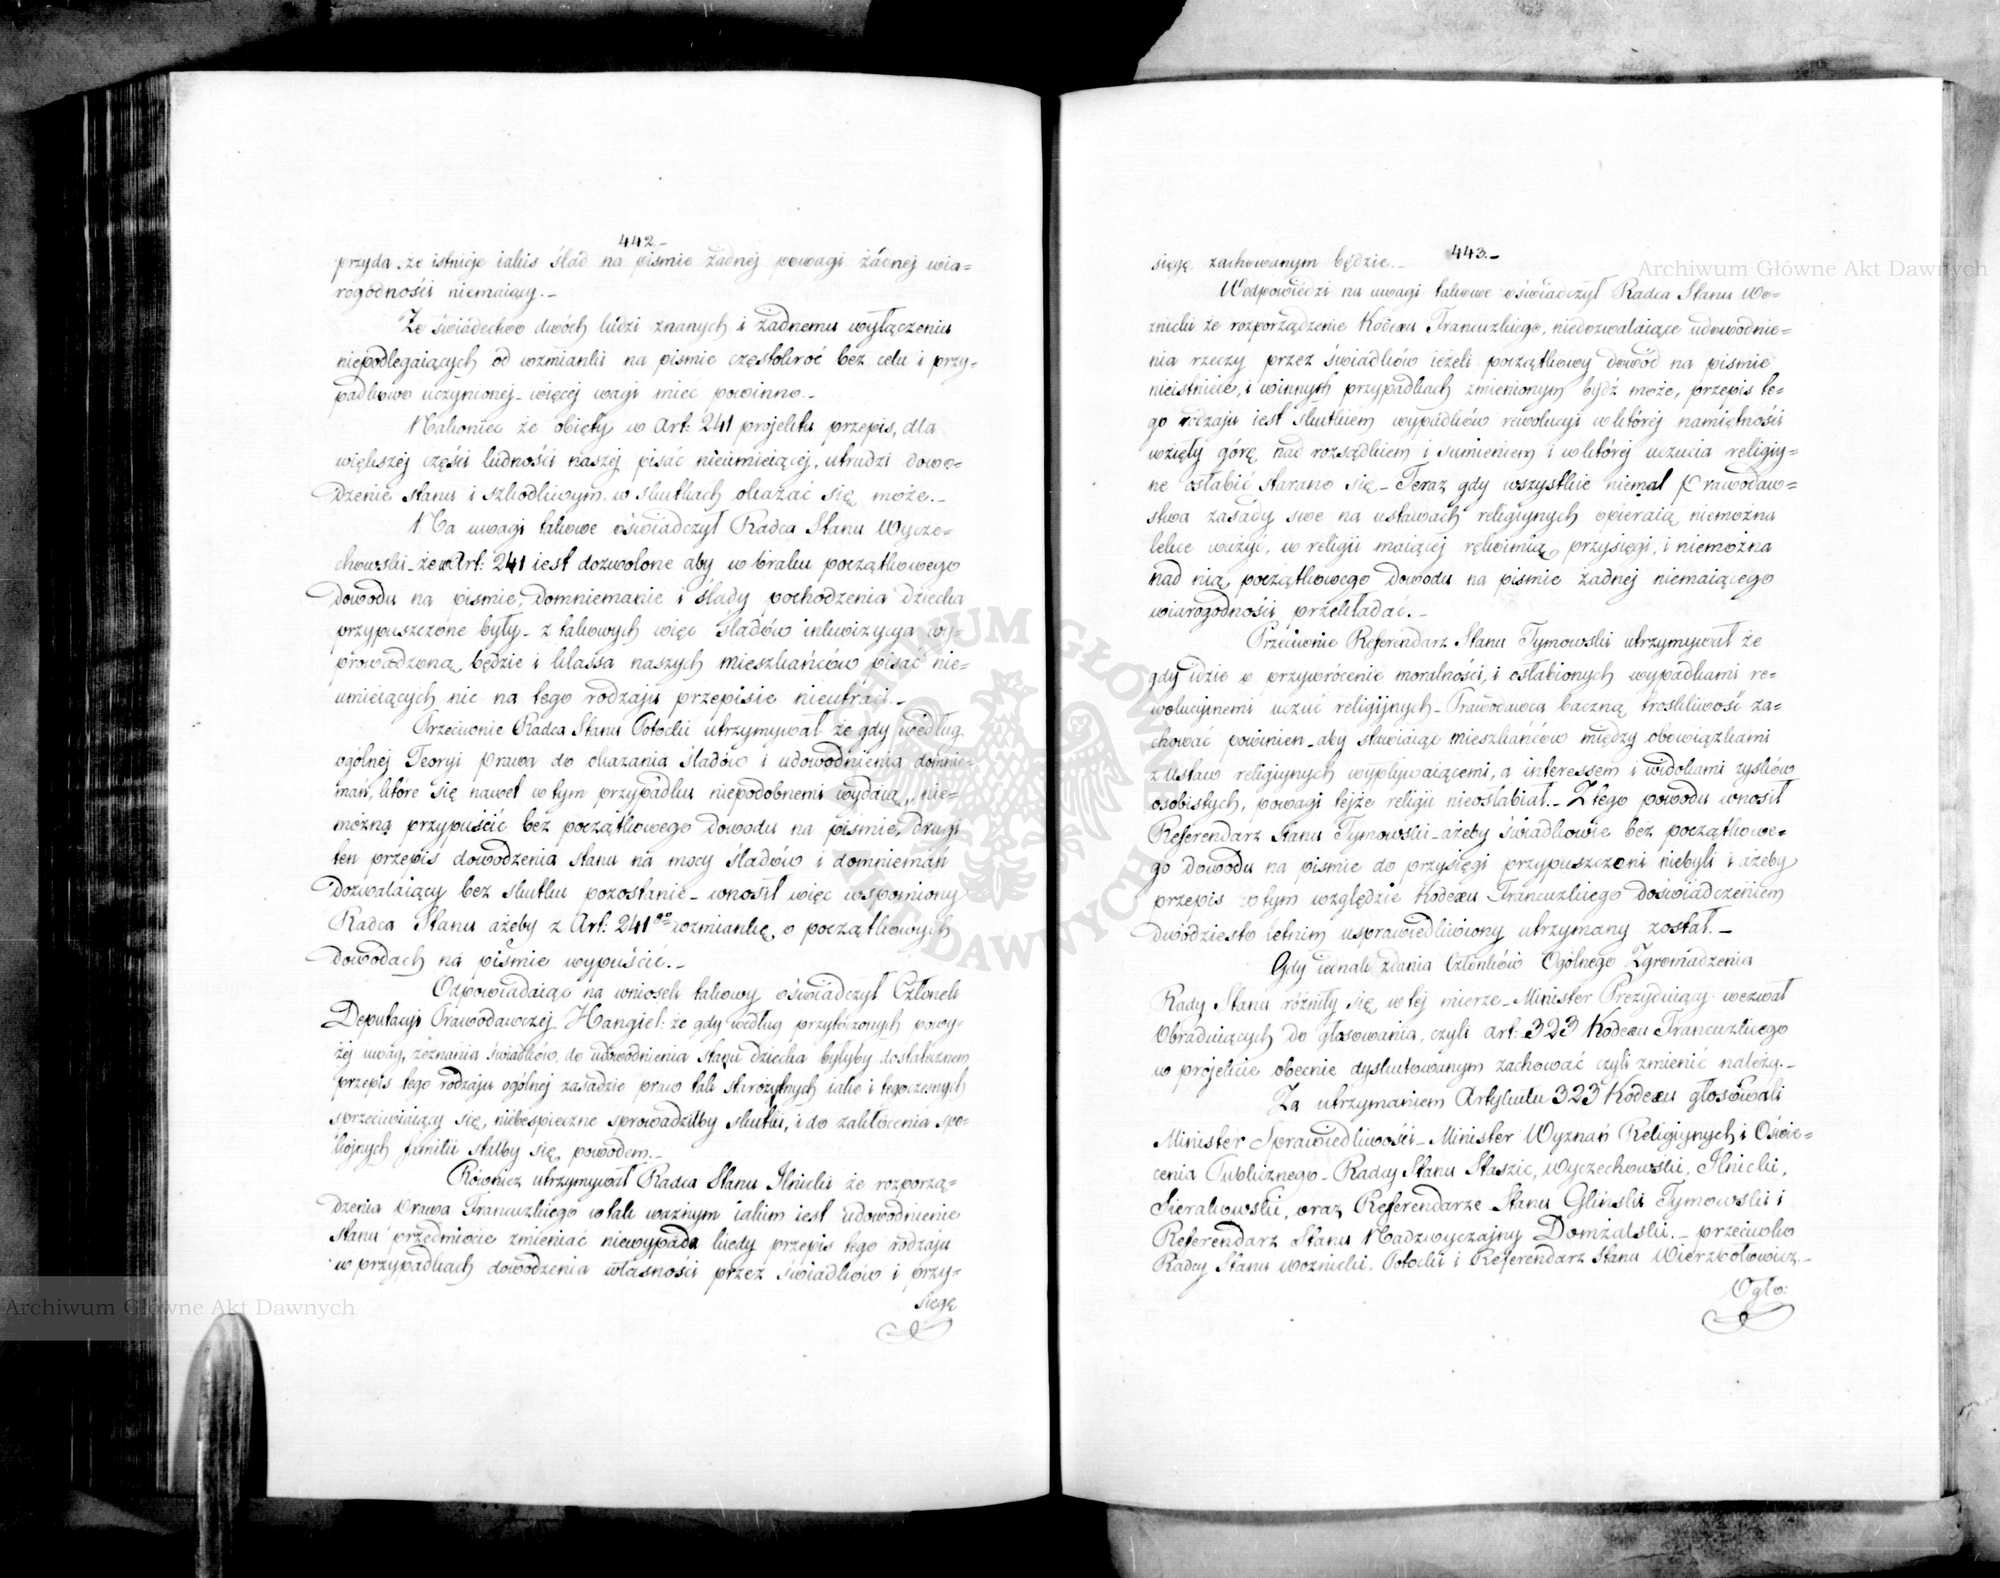 442.-
przyda, że istnieje iakiś ślad na piśmie żadnej powagi żadnej wia=
rogodności niemaiący.-
Że świadectwo dwóch ludzi znanych i żadnemu wyłączeniu
niepodlegaiących od wzmianki na piśmie częstokroć bez celu i przy-
padkowo uczynionej - więcej wagi mieć powinno.-
Nakoniec że obięty w Art: 241 projektu przepis, dla
większej części ludności naszej pisać nieumieiącej, utrudzi dowo=
dzenie stanu i szkodliwym w skutkach okazać się może.-
Na uwagi takowe oświadczył Radca Stanu Wycze=
chowski - że w Art: 241 iest dozwolone aby w braku początkowego
dowodu na piśmie, domniemanie i ślady pochodzenia dziecka
przypuszczone były - z takowych więc śladów inkwizycya wy=
prowadzoną będzie i klassa naszych mieszkańców pisać nie=
umieiących nic na tego rodzaju przepisie nieutraci.-
Przeciwnie Radca Stanu Potocki utrzymywał że gdy według
ogólnej Teoryi prawa do okazania śladów i udowodnienia domnie=
mań, które się nawet w tym przypadku niepodobnemi wydaią, nie=
można przypuścić bez początkowego dowodu na piśmie, drugi
ten przepis dowodzenia stanu na mocy śladów i domniemań
dozwalaiący bez skutku pozostanie - wnosił więc wspomniony
Radca Stanu ażeby z Art: 241go wzmiankę o początkowych
dowodach na piśmie wypuścić.-
Odpowiadaiąc na wniosek takowy oświadczył Członek
Deputacyi Prawodawczej Hankiel: że gdy według przytoczonych powy-
żej uwag, zeznania świadków, do udowodnienia stanu dziecka byłyby dostateczném
przepis tego rodzaju ogólnej zasadzie praw tak starożytnych iako i tegoczesnych
sprzeciwiaiący się, niebespieczne sprowadziłby skutki, i do zakłócenia spo=
kojnych familii stałby się powodem.-
Również utrzymywał Radca Stanu Ilnicki że rozporzą=
dzenia Prawa Francuzkiego w tak ważnym iakim iest udowodnienie
stanu przedmiocie zmieniać niewypada kiedy przepis tego rodzaju
w przypadkach dowodzenia własności przez świadków i przy=
sięgę
443.-
sięgę zachowanym będzie.-
W odpowiedzi na uwagi takowe oświadczył Radca Stanu Wo=
znicki że rozporządzenie Kodexu Francuzkiego, niedozwalaiące udowodnie=
nia rzeczy przez świadków ieżeli początkowy dowód na piśmie
nieistnieie, i w innych przypadkach zmienionym bydź może, przepis te=
go rodzaju iest skutkiem wypadków rewolucyi w której namiętności
wzięły górę nad rozsądkiem i sumieniem i w której uczucia religiy=
ne osłabić starano się - Teraz gdy wszystkie niemal Prawodaw=
stwa zasady swe na ustawach religiynych opieraią niemożna
lekce ważyć, w religii maiącej rękoimią, przysięgi, i niemożna
nad nią początkowego dowodu na piśmie żadnej niemaiącego
wiarogodności przekładać.-
Przeciwnie Referendarz Stanu Tymowski utrzymywał że
gdy idzie o przywrócenie moralności, i osłabionych wypadkami re=
wolucyinemi uczuć religijnych - Prawodawca baczną troskliwość za=
chować powinien - aby stawiaiąc mieszkańców między obowiązkami
z ustaw religiynych wypływaiącemi, a interessem i widokami zysków
osobistych, powagi tejże religii nieosłabiał.- Z tego powodu wnosił
Referendarz Stanu Tymowski - ażeby świadkowie bez początkowe=
go dowodu na piśmie do przysięgi przypuszczeni niebyli i ażeby
przepis w tym względzie Kodexu Francuzkiego doświadczeniem
dwódziesto letnim usprawiedliwiony utrzymany został.-
Gdy iednak zdania Członków Ogólnego Zgromadzenia
Rady Stanu różniły się w tej mierze - Minister Prezyduiący wezwał
Obraduiących do głosowania, czyli art: 323 Kodexu Francuzkiego
w projekcie obecnie dyskutowanym zachować czyli zmienić należy.-
Za utrzymaniem Artykułu 323 Kodexu głosowali
Minister Sprawiedliwości - Minister Wyznań Religiynych i Oświe=
cenia Publicznego - Radcy Stanu Staszic, Wyczechowski, Ilnicki,
Sierakowski, oraz Referendarze Stanu Gliński Tymowski i
Referendarz Stanu Nadzwyczajny Domżalski.- przeciwko
Radcy Stanu Woznicki, Potocki i Referendarz Stanu Wierzbołowicz.-
Ogło:
Archiwum Główne Akt Dawnych
Archiwum Główne Akt Dawnych
ARCHIWUM GŁÓWNE AKT DAWNYCH